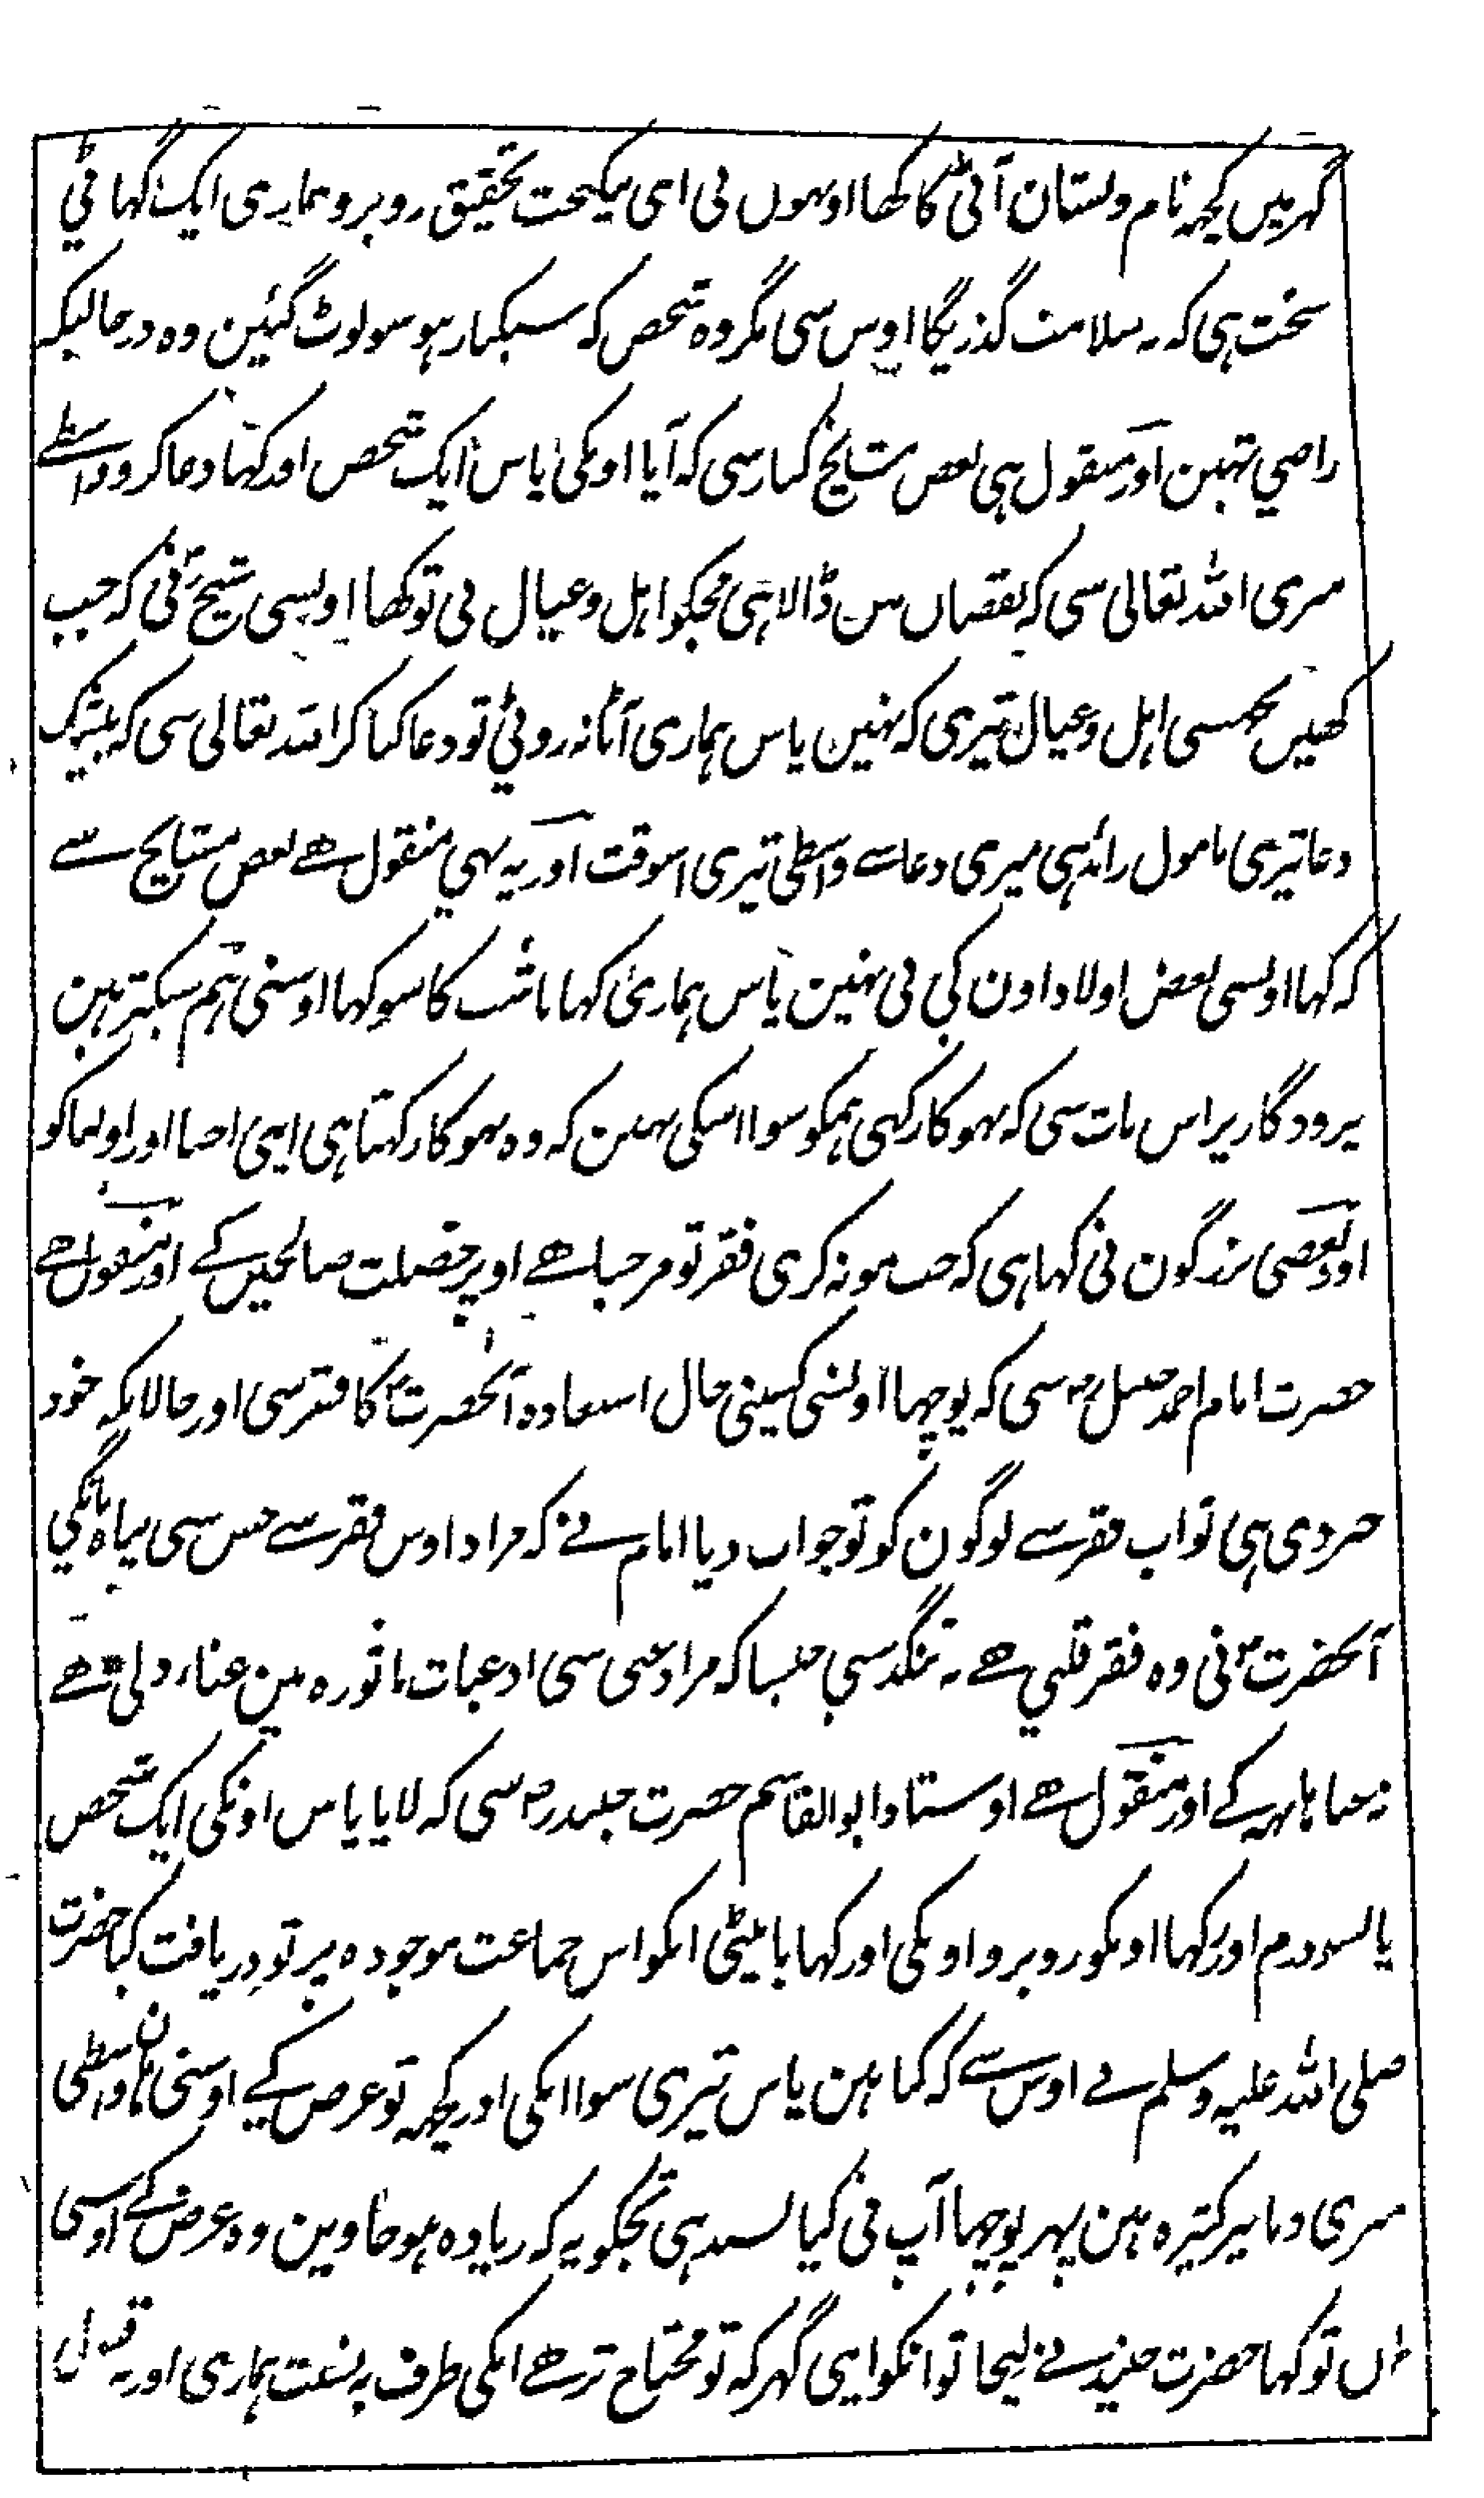 گہر میں کچہہ نام ونشان آٹی کا کھا اونہوں نی ای نیکبخت تحقیق روبرو ہماری ایک گہاٹی
سخت ہی کہ نہ سلامت گذریگا اوس سی مگر وہ شخص کہ سبکبار ہو سو لوٹ گئین وہ درحالیکہ
راضی تہین اور منقول ہی بعض مشایخ کبار سی کہ آیا اونکی پاس ایک شخص اور کہا دعا کرو واسطے
میری اللہ تعالی سی کہ نقصان میں ڈالا ہی مجکو اہل وعیال نی تو کھا اوسی شیخ نی کہ جب
کھیں تجھسی اہل وعیال تیری کہ نہین پاس ہماری آٹا نہ روٹی تو دعا کیا کر اللہ تعالی سی کہ بیشک
دعا تیری مامول زائد ہی میری دعا سے واسطی تیری اسوقت اور یہ بہی منقول ہے بعض مشایخ سے
کہ کہا اوسی بعض اولاد اون کی نی نہین پاس ہماری کہانا شب کا سو کہا اوسنی ہم سبکتر ہین
پرودگار پر اس بات سی کہ بہوکا رکہی ہمکو سوا اسکی نہین کہ وہ بہوکا رکہتا ہی اپنی احبا اور اولیا کو
اور بعضی بزرگون نی کہا ہی کہ جب مونہ کری فقر تو مرحبا ہے اوپر خصلت صالحین کے اور منقول ہے
حضرت امام احمد حنبل رح سی کہ پوچہا اونسی کسینی حال استعاذہ آنحضرت کا فقر سی اور حالانکہ خود
خبر دی ہی ثواب فقر سے لوگون کو تو جواب دیا امام نے کہ مراد اوس فقر سے جس سی پناہ مانگی
آنحضرت نی وہ فقر قلبی ہے نہ تنگدستی جیسا کہ مراد غنی سی ادعیات ماثورہ مین غناء دلی ہے
نہ غنا ظاہر کے اور منقول ہے اوستاد ابوالقاسم حضرت جنید رح سی کہ لایا پاس اونکی ایک شخص
پانسو درم اور رکہا اونکو روبرو اونکی اور کہا بانٹئی انکو اس جماعت موجودہ پر تو دریافت کیا حضرت
صلی اللہ علیہ وسلم نے اوس سے کہ کیا ہین پاس تیری سوا انکی اور کچہہ تو عرض کیے اوسنی ہان واسطی
میری دنانیر کثیرہ ہین پہر پوچہا آپ نی کیا پسند ہی تجکو یہ کہ زیادہ ہو جاوین وہ عرض کے اوسی
ہان تو کہا حضرت جنید نے لیجا تو انکو اپنی گہر کہ تو محتاج تر ہے انکی طرف بہ نسبت ہماری اور نہ قبول